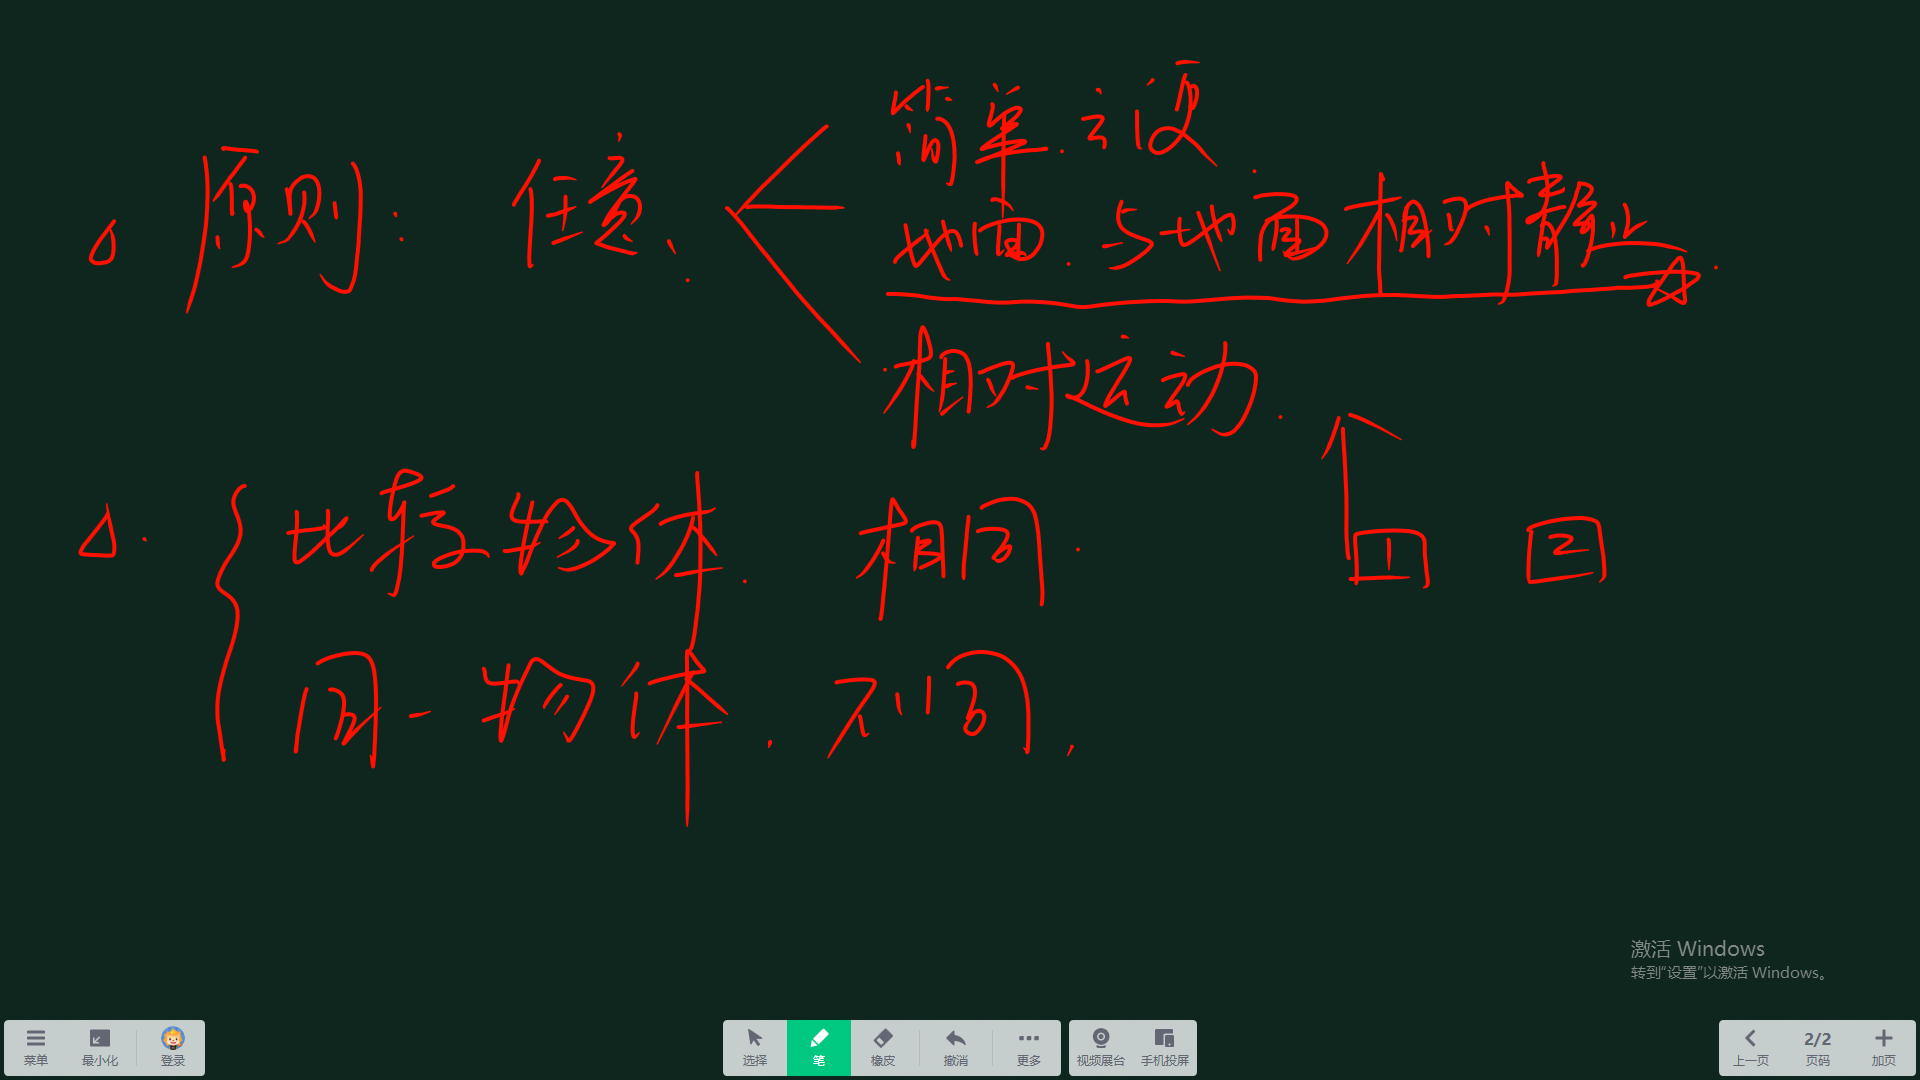 简单.方便.
原则: 任意.
地面. 与地面相对静止.
相对运动.
比较物体. 相同.
1 2
同一物体. 不同.
激活 Windows
转到“设置”以激活 Windows。
菜单 最小化 登录 选择 笔 橡皮 撤消 更多 视频展台 手机投屏 上一页 2/2 页码 加页